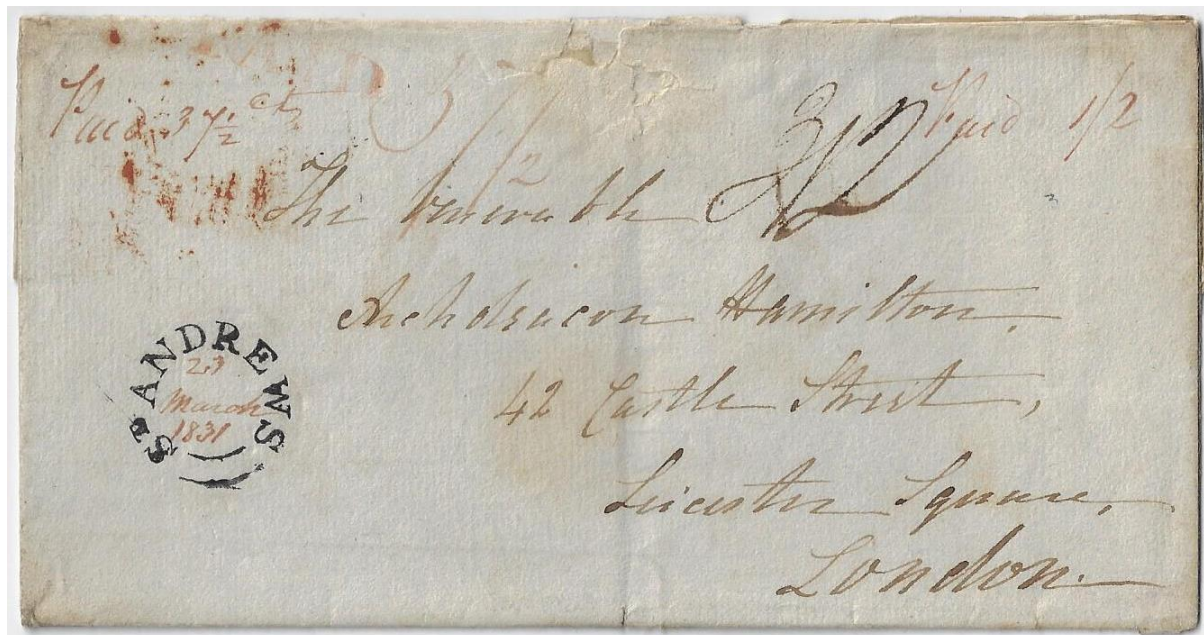 Paid 37½ cts
1/2
3/2
Paid 1/2
The Venerable
Archdeacon Hamilton,
42 Castle Street,
Leicester Square,
London.
ST ANDREWS
23
March
1831